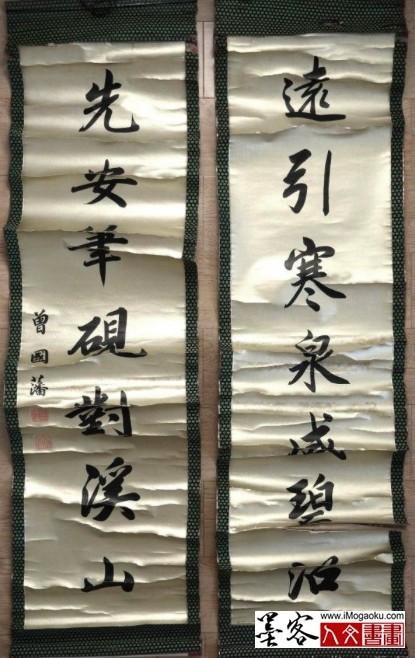 遠引寒泉成碧沼
先安筆硯對溪山
曾國藩
墨客
www.iMogaoku.com
人文書畫